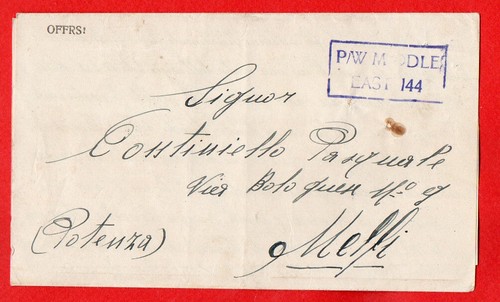 OFFRS:
P/W MIDDLE
EAST 144
Signor
Costiniello Pasquale
Via Bologna No 9
(Potenza)
Melfi